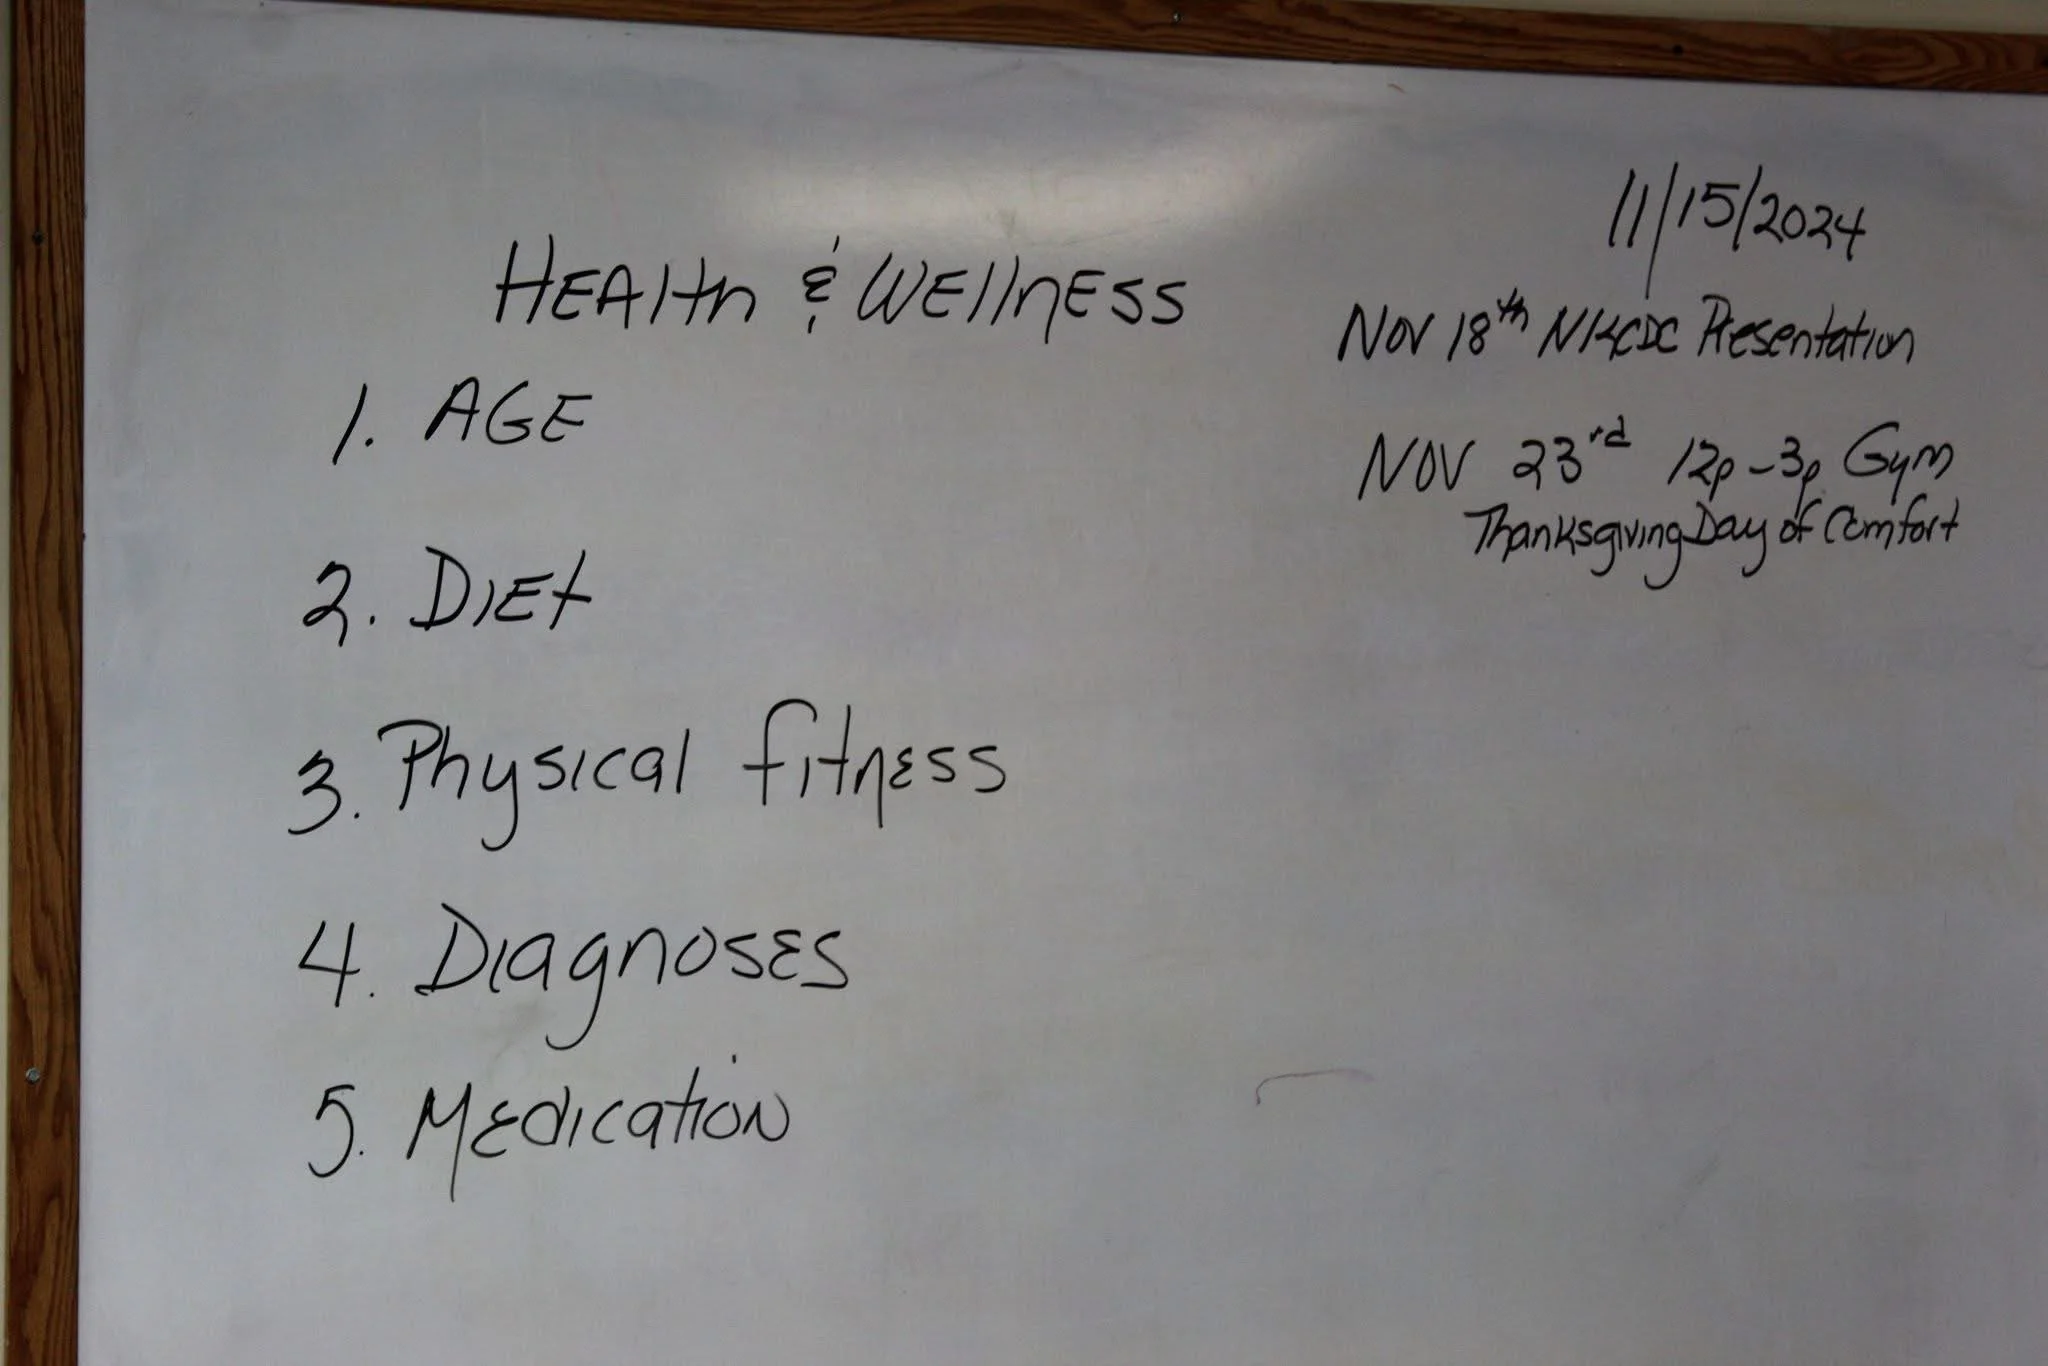 HEAlth & WEllnESS
1. AGE
2. DIEt
3. Physical fitness
4. Diagnoses
5. Medication
11/15/2024
Nov 18th NKCDC Presentation
NOV 23rd 12p-3p Gym
Thanksgiving Day of Comfort